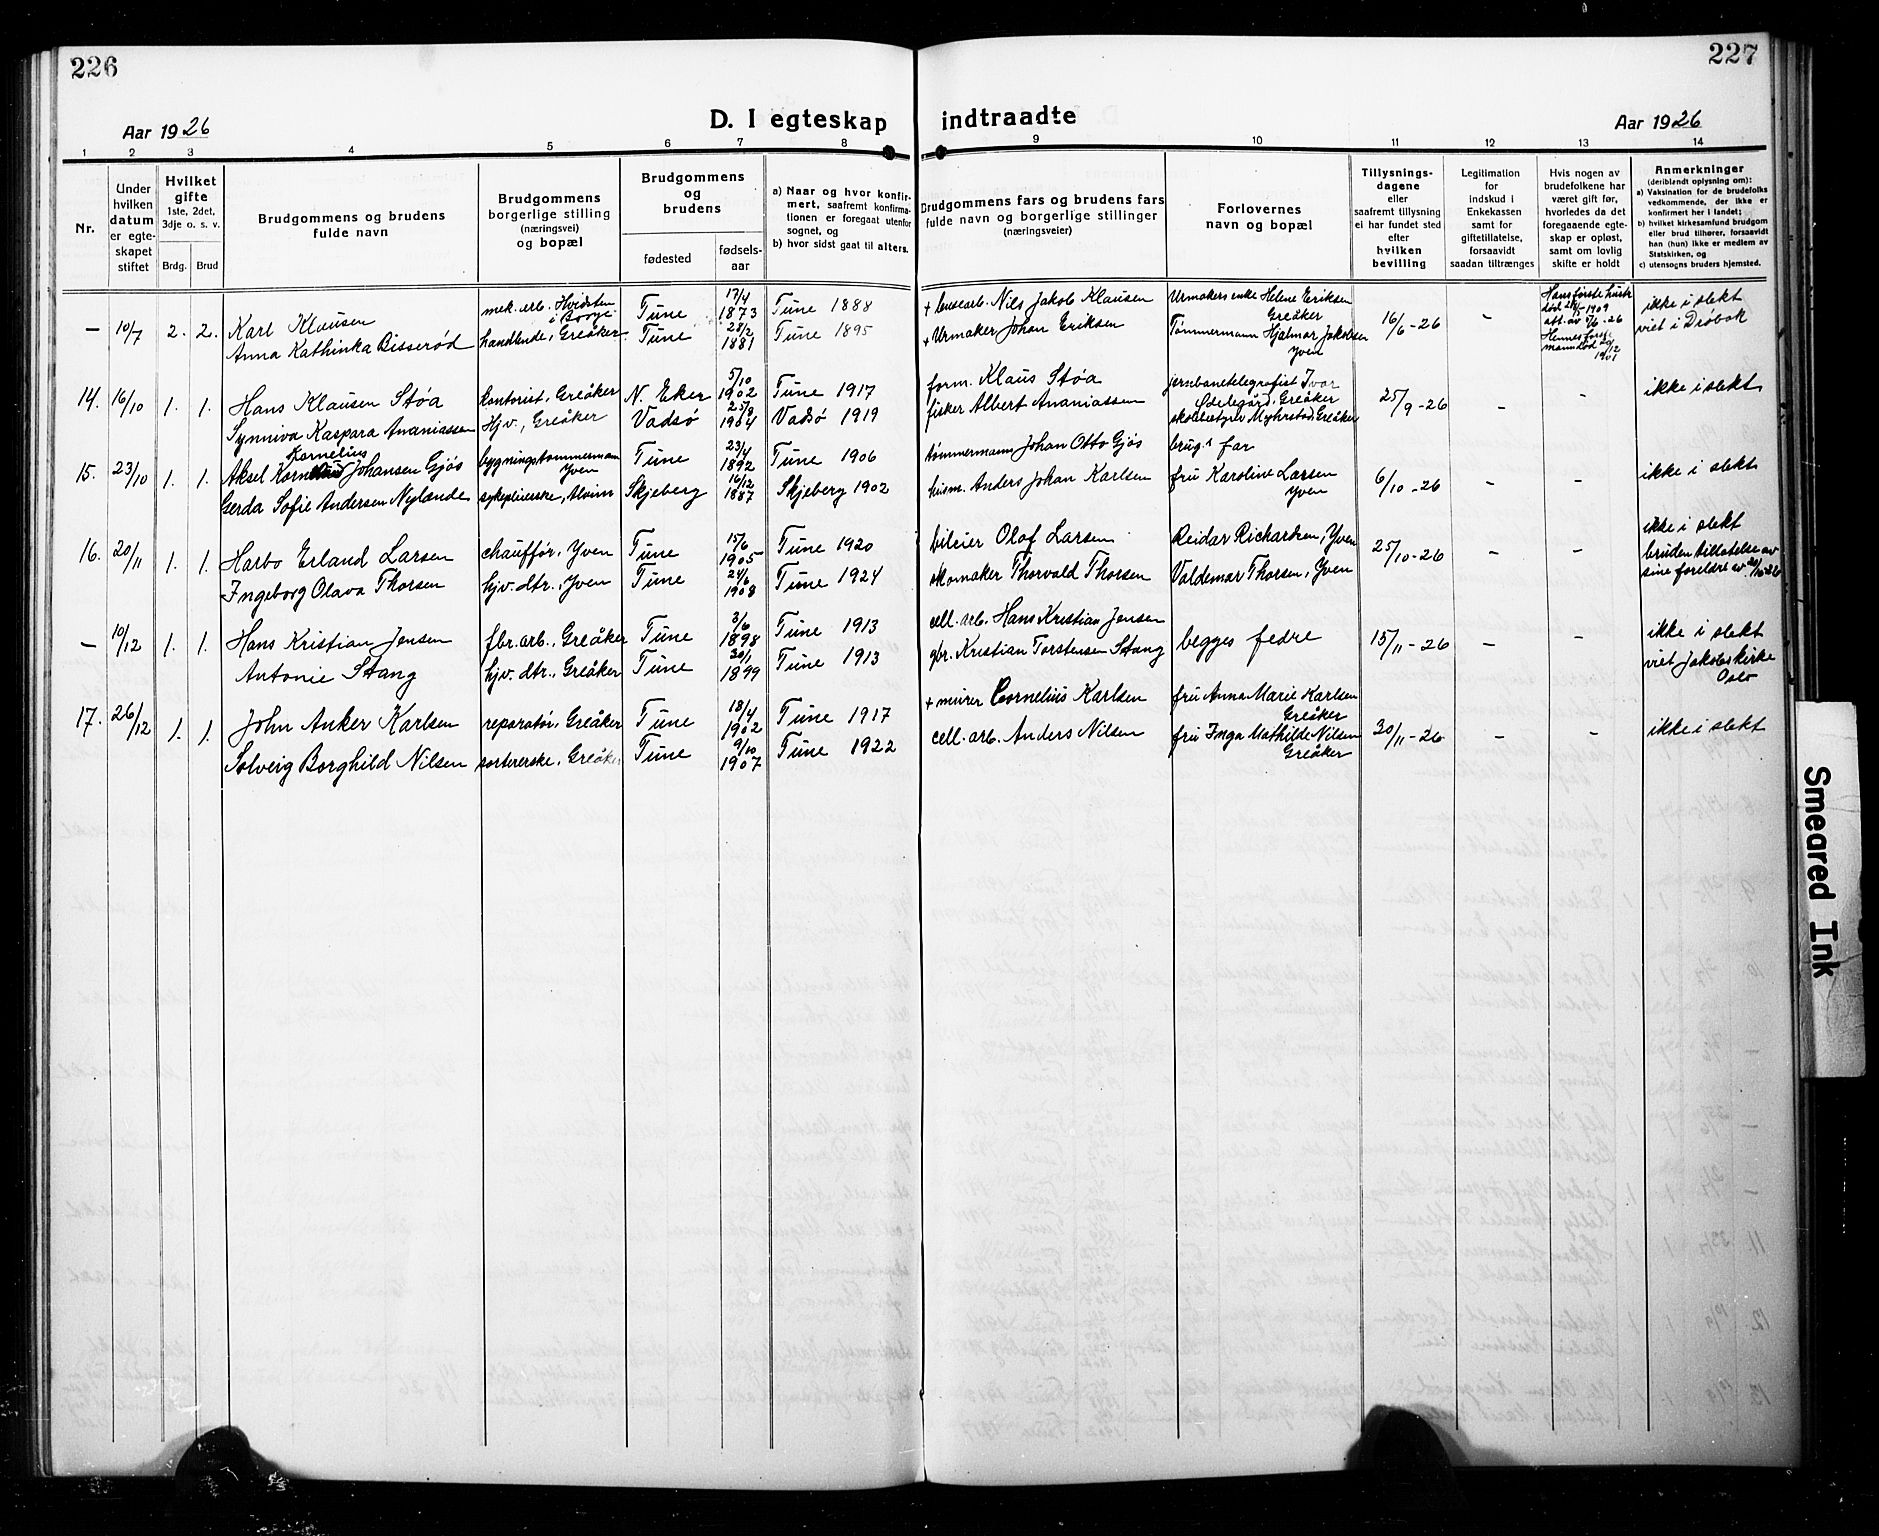 226
227
D. I egteskap indtraadte
Aar 1926
Aar 1926
1 2 3 4 5 6 7 8 9 10 11 12 13 14
Nr.
Under
hvilken
datum
er egte-
skapet
stiftet
Hvilket
gifte
1ste, 2det,
3dje o. s. v.
Brdg. Brud
Brudgommens og brudens
fulde navn
Brudgommens
borgerlige stilling
(næringsvei)
og bopæl
Brudgommens
og
brudens
fødested
fødsels-
aar
a) Naar og hvor konfir-
mert, saafremt konfirma-
tionen er foregaat utenfor
sognet, og
b) hvor sidst gaat til alters.
Brudgommens fars og brudens fars
fulde navn og borgerlige stillinger
(næringsveier)
Forlovernes
navn og bopæl
Tillysnings-
dagene
eller
saafremt tillysning
ei har fundet sted
efter
hvilken
bevilling
Legitimation
for
indskud i
Enkekassen
samt for
giftetillatelse,
forsaavidt
saadan tiltrænges
Hvis nogen av
brudefolkene har
været gift før,
hvorledes da det
foregaaende egte-
skap er opløst,
samt om lovlig
skifte er holdt
Anmerkninger
(deriblandt oplysning om):
a) Vaksination for de brudefolks
vedkommende, der ikke er
konfirmert her i landet;
b) hvilket kirkesamfund brudgom
eller brud tilhører, forsaavidt
han (hun) ikke er medlem av
Statskirken, og
c) utensogns bruders hjemsted.
– 10/7 2. 2. Karl Klausen mek. arb. Hvidsten i Borge Tune 17/4 1873 Tune 1888 + brusearb. Nils Jakob Klausen Urmakers enke Helene Eriksen Greåker 16/6-26 – Hans første hustr død 1909 att. av 5/6-26 ikke i slekt
Anna Kathinka Bisserød handlende, Greåker Tune 28/2 1881 Tune 1895 + Urmaker Johan Eriksen Tømmermann Hjalmar Jakobsen Yven Hennes forr. mann død 1901 viet i Drøbak
14. 16/10 1. 1. Hans Klausen Støa kontorist, Greåker N. Eker 5/10 1902 Tune 1917 form. Klaus Støa jernbanetelegrafist Ivar Stelegård, Greåker 25/9-26 – – ikke i slekt
Synniva Kaspara Ananiassen Hjv., Greåker Vadsø 25/8 1904 Vadsø 1919 fisker Albert Ananiassen skolebestyrer Myhrstad, Greåker
15. 23/10 1. 1. Aksel Kornelius Johansen Gjøs bygningstømmermann Yven Tune 23/4 1892 Tune 1906 tømmermann Johan Otto Gjøs brug.s far 6/10-26 – – ikke i slekt
Gerda Sofie Andersen Nylænde sykepleierske, Alvim Skjeberg 16/12 1887 Skjeberg 1902 husm. Anders Johan Karlsen fru Karoline Larsen Yven
16. 20/11 1. 1. Harbo Erland Larsen chauffør, Yven Tune 15/6 1905 Tune 1920 bileier Olof Larsen Reidar Richardsen, Yven 25/10-26 – – ikke i slekt
Ingeborg Olava Thorsen hjv. dtr., Yven Tune 24/6 1908 Tune 1924 skomaker Thorvald Thorsen Valdemar Thorsen, Yven bruden tillatelse av sine foreldre
– 10/12 1. 1. Hans Kristian Jensen fbr. arb., Greåker Tune 3/6 1898 Tune 1913 cell. arb. Hans Kristian Jensen begges fedre 15/11-26 – – ikke i slekt
Antonie Stang hjv. dtr., Greåker Tune 30/1 1899 Tune 1913 gbr. Kristian Torstensen Stang viet Jakobskirke Oslo
17. 26/12 1. 1. John Anker Karlsen reparatør, Greåker Tune 18/4 1902 Tune 1917 + murer Cornelius Karlsen fru Anna Marie Karlsen Greåker 30/11-26 – – ikke i slekt
Solveig Borghild Nilsen sortererske, Greåker Tune 9/10 1907 Tune 1922 cell. arb. Anders Nilsen fru Inga Mathilde Nilsen Greåker
Smeared Ink